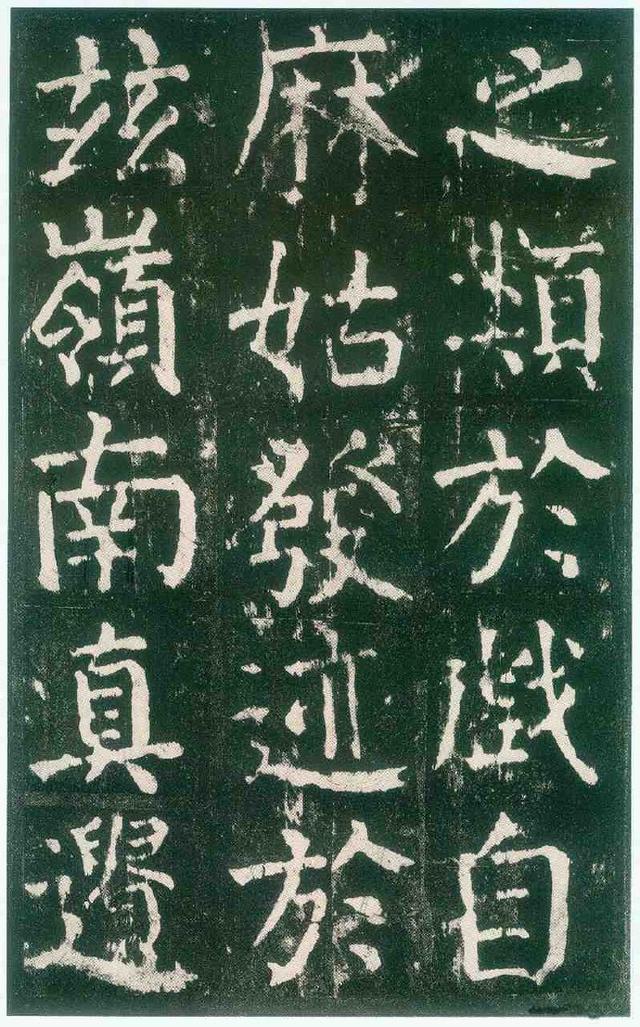 之類於戲自
麻姑發迹於
茲嶺南真遺